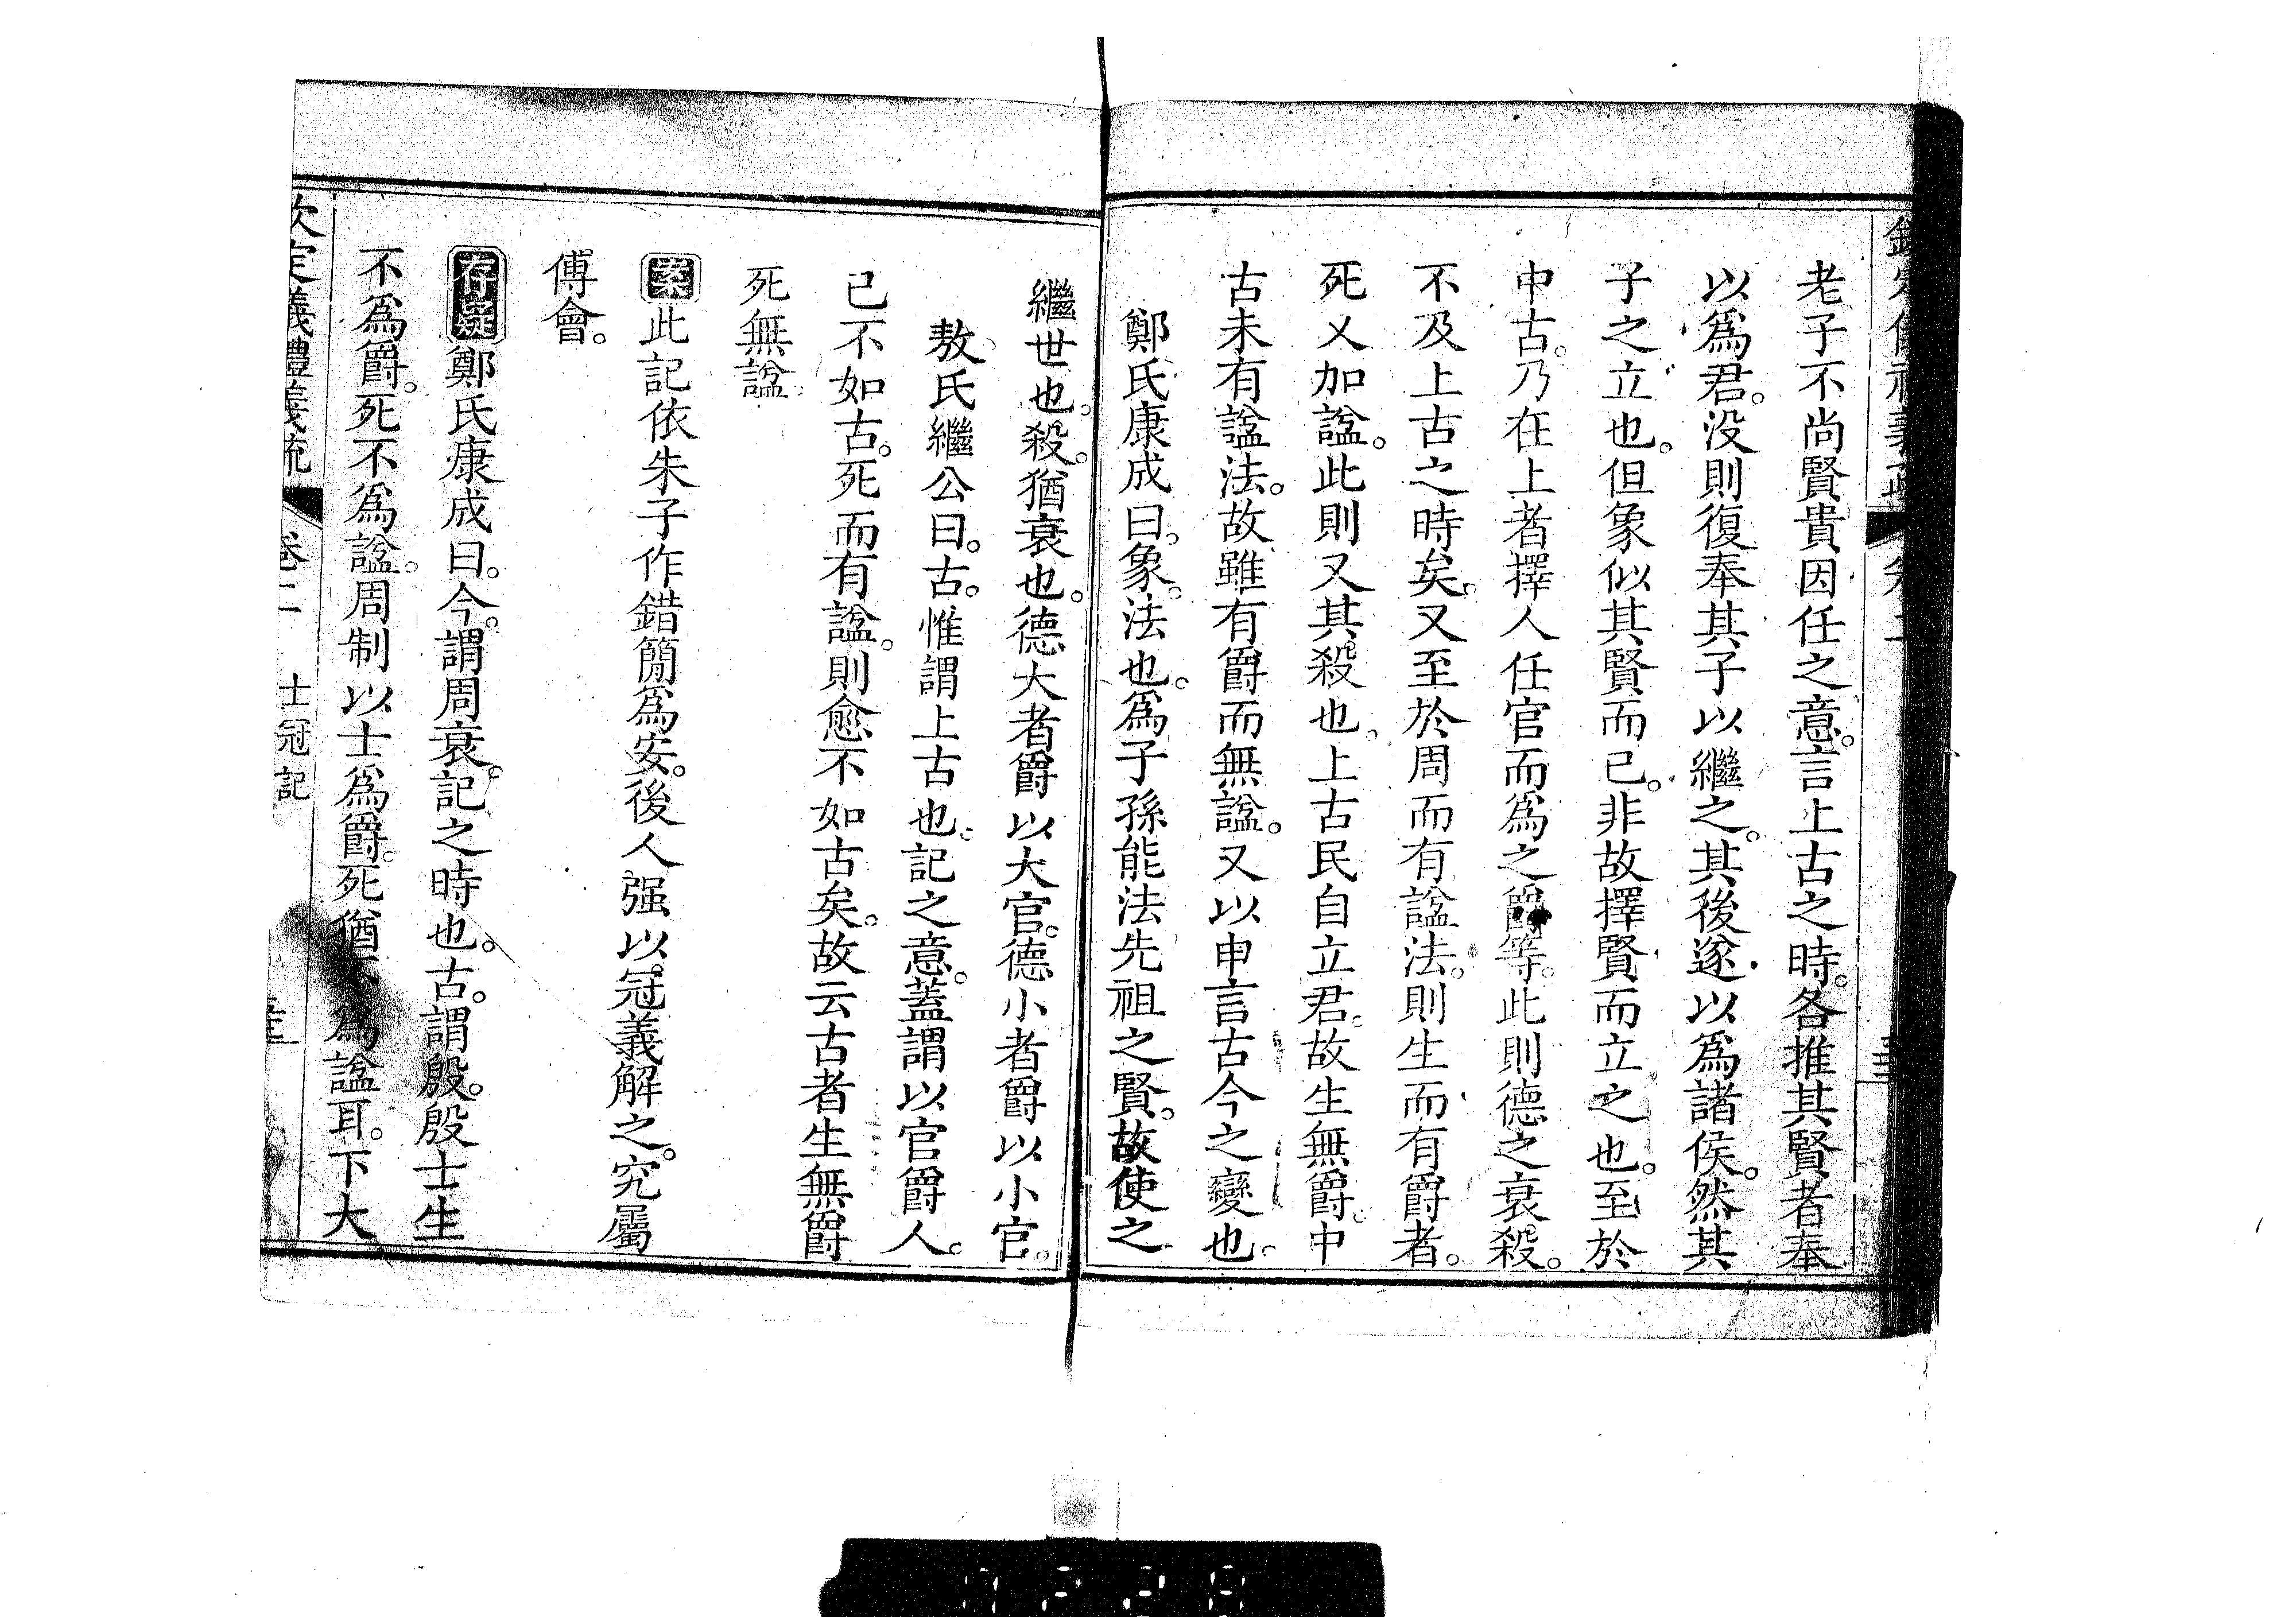 老子不尚賢貴因任之意。言上古之時。各推其賢者奉
以爲君。没則復奉其子以繼之。其後遂以爲諸侯。然其
子之立也。但象似其賢而已。非故擇賢而立之也。至於
中古。乃在上者擇人任官而爲之爵等。此則德之衰殺。
不及上古之時矣。又至於周而有諡法。則生而有爵者。
死又加諡。此則又其殺也。上古民自立君。故生無爵。中
古未有諡法。故雖有爵而無諡。又以申言古今之變也。
鄭氏康成曰。象。法也。爲子孫能法先祖之賢。故使之
繼世也。殺。猶衰也。德大者爵以大官。德小者爵以小官。
敖氏繼公曰。古。惟謂上古也。記之意。蓋謂以官爵人。
已不如古。死而有諡。則愈不如古矣。故云古者生無爵
死無諡。
案此記依朱子作錯簡爲安。後人强以冠義解之。究屬
傅會。
存疑鄭氏康成曰。今。謂周衰。記之時也。古。謂殷。殷士生
不爲爵。死不爲諡。周制以士爲爵。死猶不爲諡耳。下大
欽定義禮義疏 卷二 士冠記